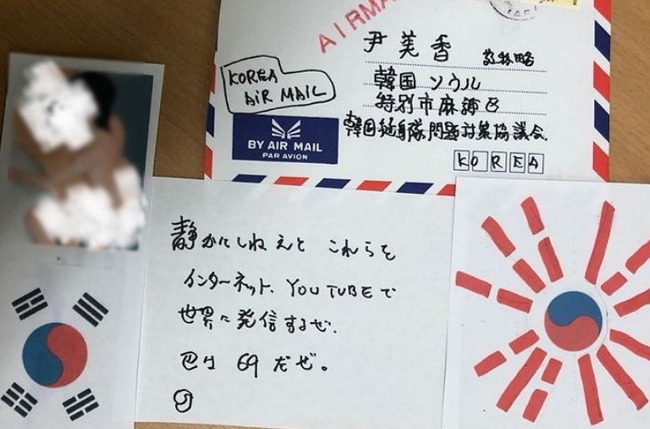 AIRMA
尹美香
KOREA
AIR MAIL
韓国 ソウル
特別市麻浦区
韓国挺身隊問題対策協議会
BY AIR MAIL
PAR AVION
KOREA
静かにしねえと これらを
インターネット、YOUTUBEで
世界に発信するぜ.
巴は 69 だぜ。